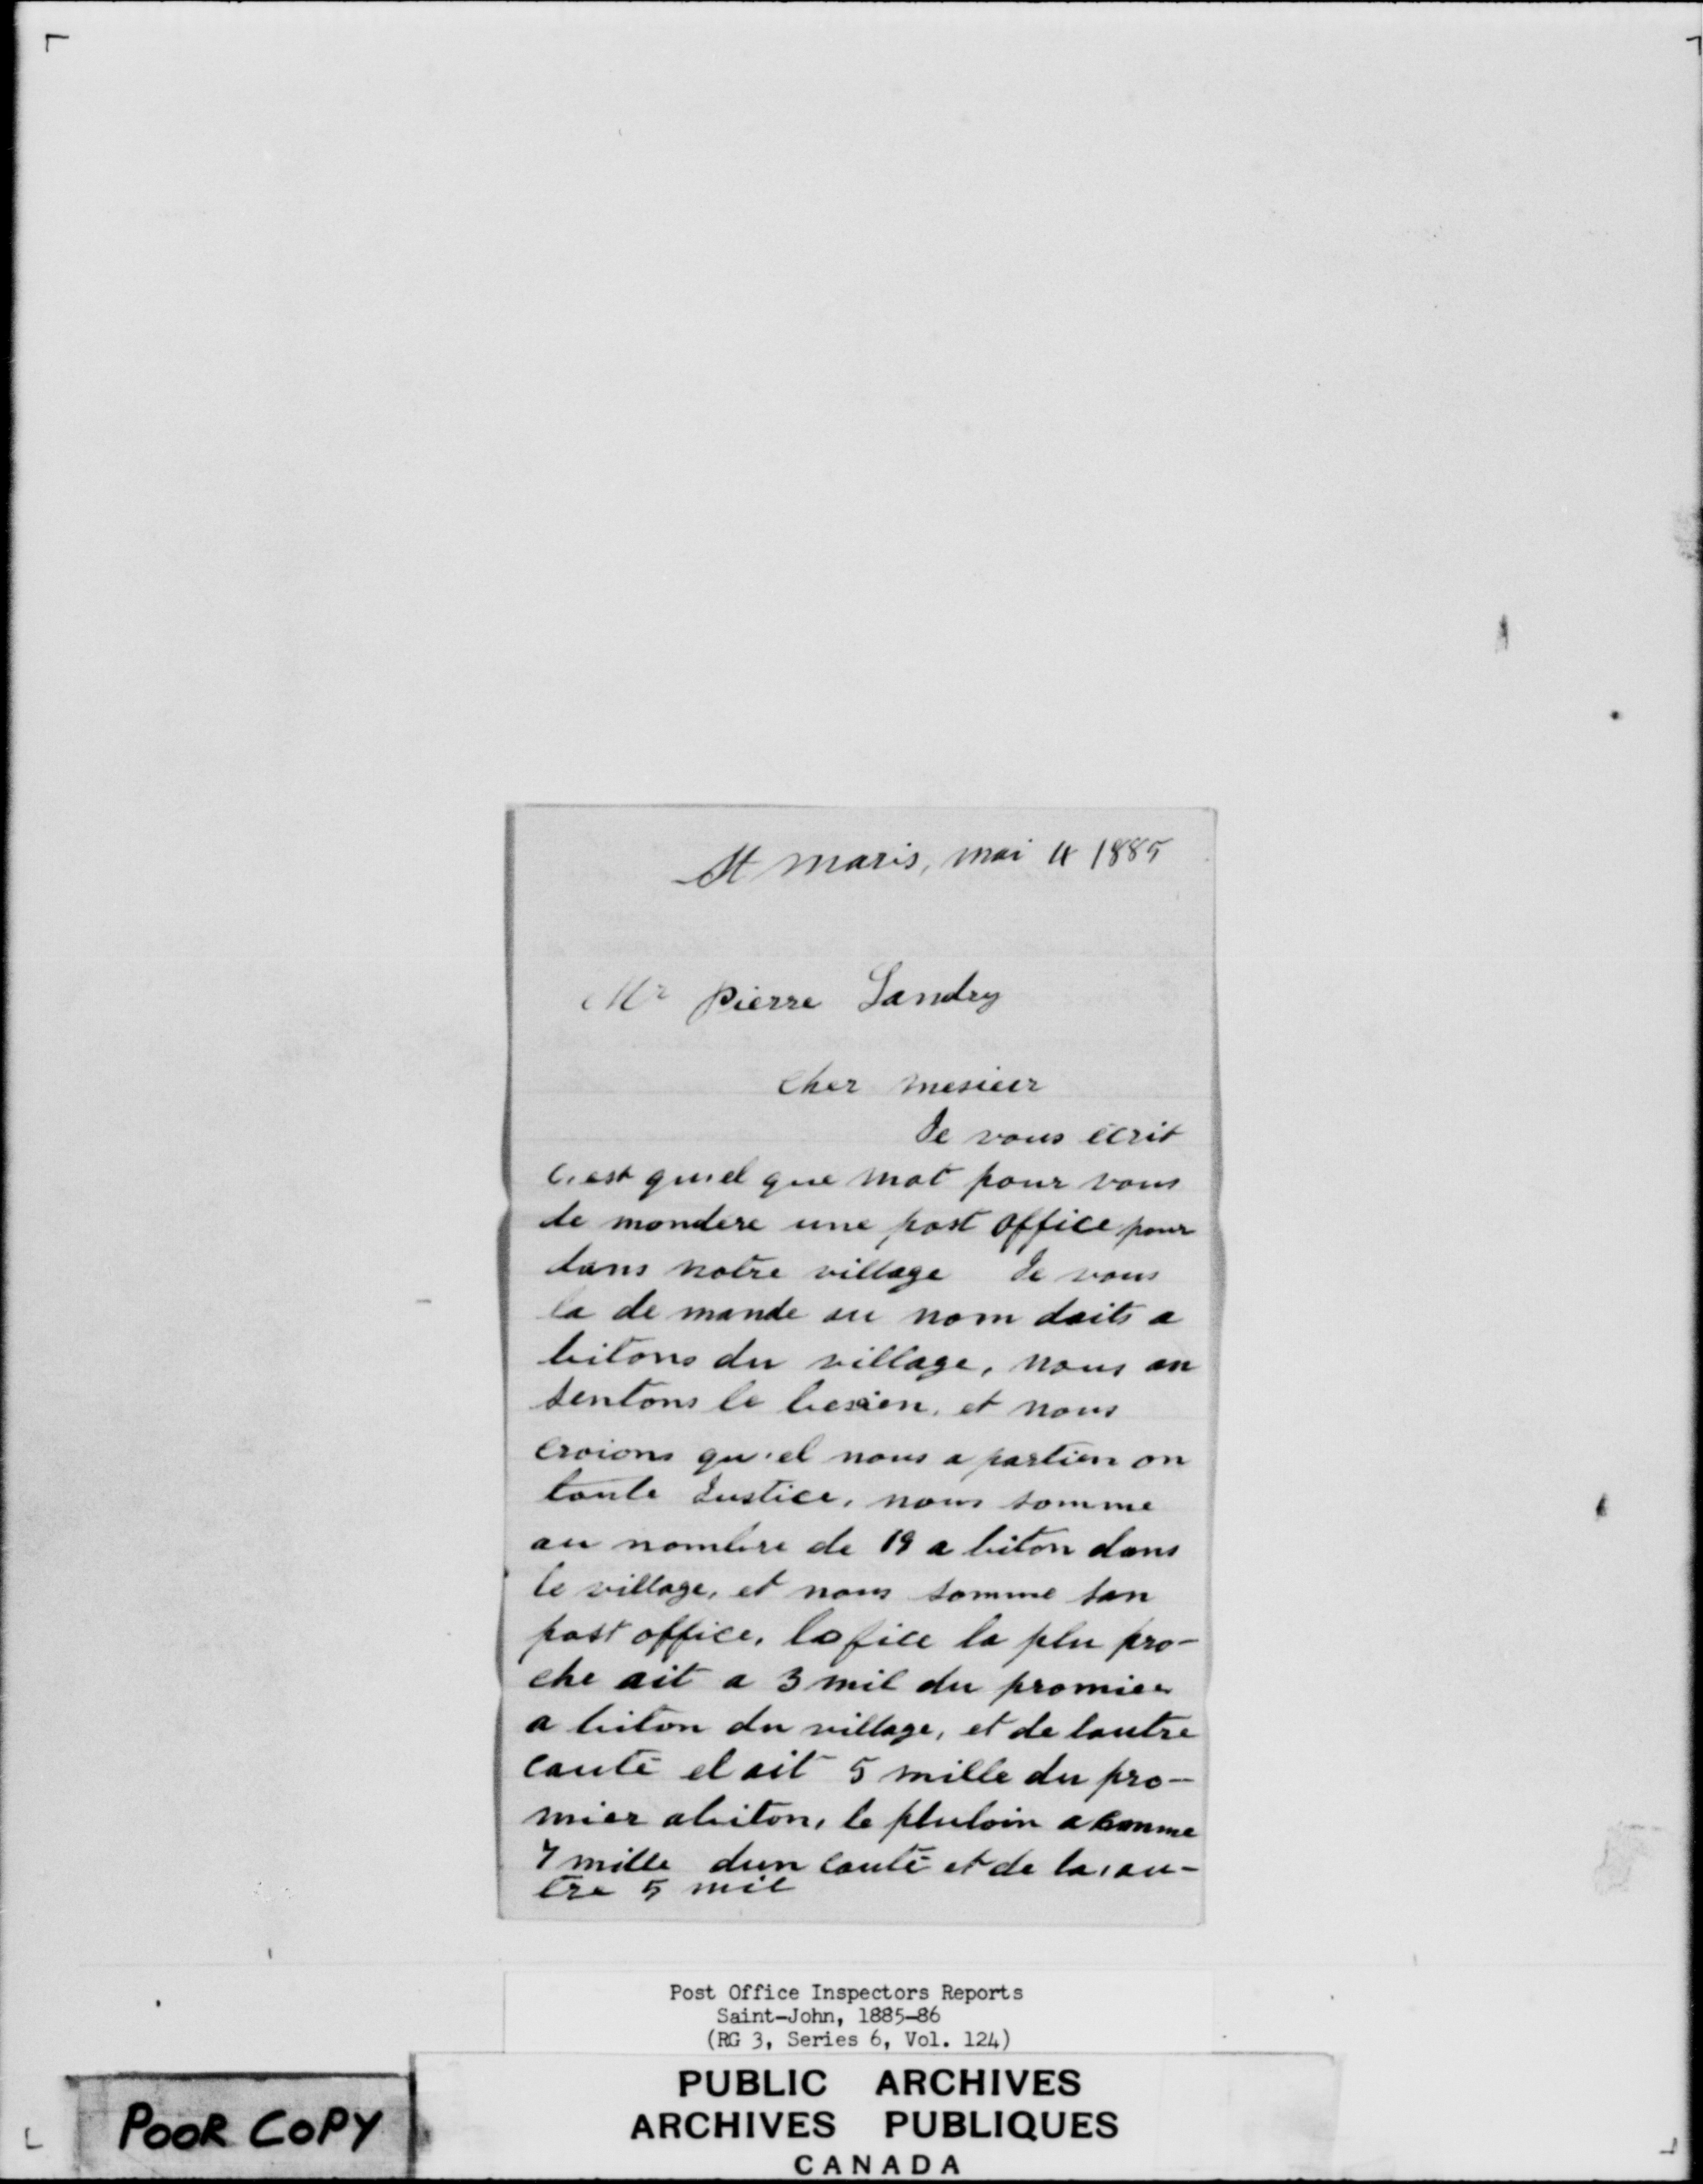 St maris, mai 4 1885
Mr pierre Landry
Cher mesieur
Je vous ecrit
c,est qu,el que mot pour vous
de mondere une post office pour
dans notre village Je vous
la de mande au nom daits a
bitons du village, nous an
sentons le besien, et nous
croions qu,el nous a partien on
toute Justice, nous somme
au nombre de 19 a biton dans
le village, et nous somme san
post office, lofice la plu pro-
che ait a 3 mil du promier
a biton du village, et de lautre
cauté el ait 5 mille du pro-
mier abiton, le pluloin a comme
7 mille dun cauté et de la,au-
tre 5 mil
Post Office Inspectors Reports
Saint-John, 1885-86
(RG 3, Series 6, Vol. 124)
PUBLIC ARCHIVES
ARCHIVES PUBLIQUES
CANADA
POOR COPY